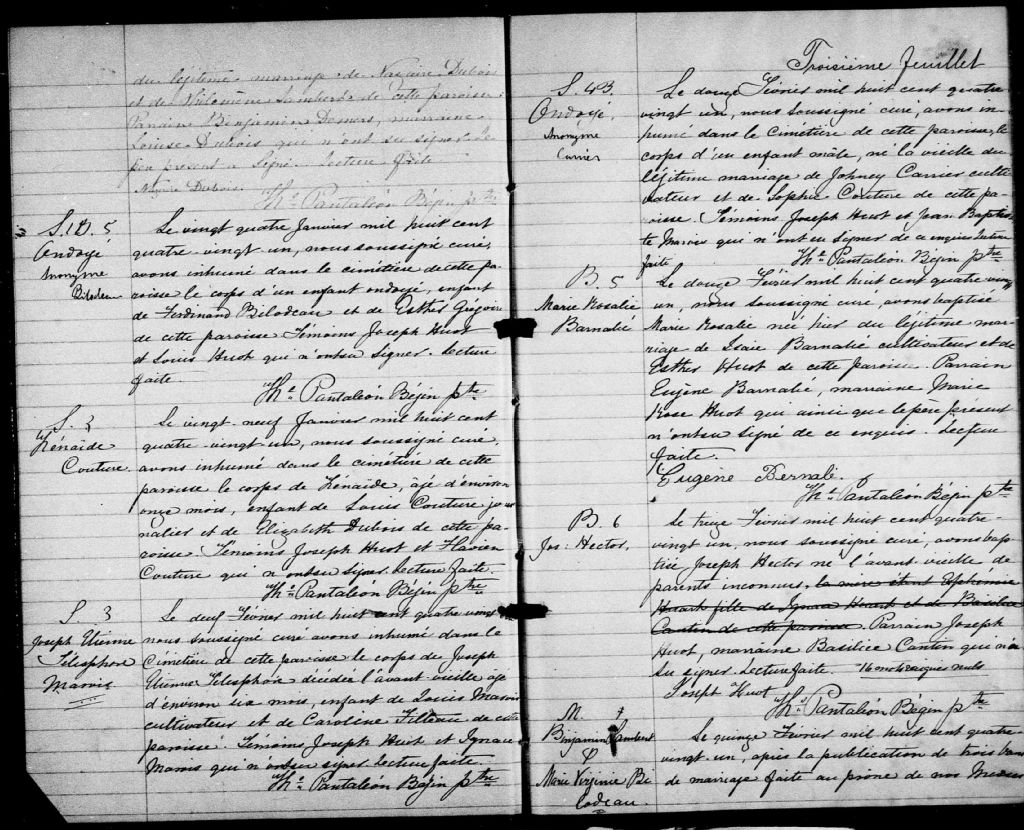 du légitime mariage de Nazaire Dubois
et de Philomène Lambert de cette paroisse.
Parrain Benjamin Demers, marraine
Louise Dubois qui n'ont su signer. Le
père présent a signé. Lecture faite
Nazaire Dubois.
Ths Pantaléon Bégin ptre
S. 5
Ondoyé
Anonyme
Bilodeau
Le vingt quatre Janvier mil huit cent
quatre vingt un, nous soussigné curé,
avons inhumé dans le cimétière de cette pa-
roisse le corps d'un enfant ondoyé, enfant
de Ferdinand Bilodeau et de Esther Grégoire
de cette paroisse Témoins Joseph Huot
et Louis Huot qui n'ont su signer. Lecture
faite.
Ths Pantaléon Bégin ptre
S. 2
Zénaïde
Couture.
Le vingt neuf Janvier mil huit cent
quatre-vingt-un, nous soussigné curé,
avons inhumé dans le cimétière de cette
paroisse le corps de Zénaïde, agé d'environ
onze mois, enfant de Louis Couture jour-
nalier et de Elizabeth Dubois de cette pa-
roisse. Témoins Joseph Huot et Flavien
Couture qui n'ont su signer. Lecture faite.
Ths Pantaléon Bégin ptre
S 3
Joseph Etienne
Télésphore
Marois
Le deux Février mil huit cent quatre vingt
nous soussigné curé avons inhumé dans le
Cimétière de cette paroisse le corps de Joseph
Etienne Télesphore décédé l'avant-veille agé
d'environ six mois, enfant de Louis Marois
cultivateur et de Caroline Filteau de cette
paroisse. Témoins Joseph Huot et Ignace
Marois qui n'ont su signer Lecture faite.
Ths Pantaléon Bégin ptre
Troisième feuillet
S. 4
Ondoyé,
Anonyme
Carrier
Le douze Février mil huit cent quatre
vingt un, nous soussigné curé, avons in-
humé dans le cimétière de cette paroisse, le
corps d'un enfant mâle, né la vieille du
légitime mariage de Johney Carrier culti-
vateur et de Sophie Couture de cette pa-
roisse. Témoins Joseph Huot et Jean Baptis-
te Marois qui n'ont su signer de ce enquis lecture
faite
Ths Pantaléon Bégin ptre
B. 5
Marie Rosalie
Barnabé
Le douze Février mil huit cent quatre vingt
un, nous soussigné curé, avons baptisé
Marie Rosalie née hier du légitime ma-
riage de Isaïe Barnabé cultivateur et de
Esther Huot de cette paroisse. Parrain
Eugène Barnabé, marraine Marie
Rose Huot qui ainsi que le père présent
n'ont su signé de ce enquis. Lecture
faite.
Eugène Bernabé.
Ths Pantaléon Bégin ptre
B. 6
Jos: Hector,
Le treize Février mil huit cent quatre-
vingt un, nous soussigné curé, avons bap-
tisé Joseph Hector né l'avant vieille de
parents inconnus, la mère étant Euphémie
Huart fille de Ignace Huart et de Basilice
Cantin de cette paroisse. Parrain Joseph
Huot, marraine Basilice Cantin qui n'a
su signer. Lecture faite. 16 mots rayés nuls
Joseph Huot
Ths Pantaléon Bégin ptre
M. †
Benjamin Lambert
&
Marie Virginie Bi-
lodeau.
Le quinze Février mil huit cent quatre
vingt-un, après la publication de trois bans
de mariage faite au prône de nos Messes